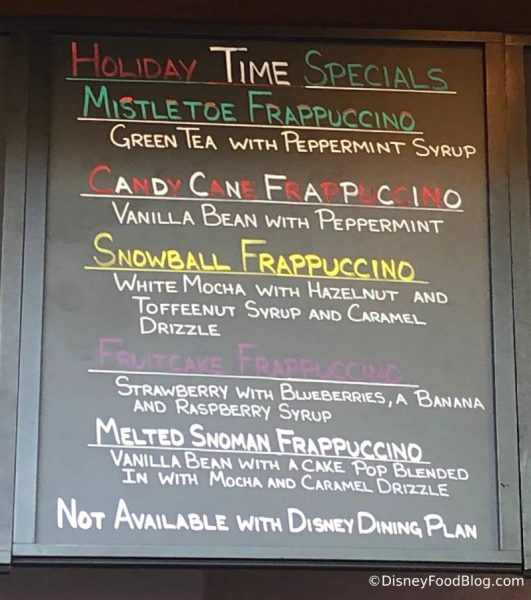 Holiday Time Specials
Mistletoe Frappuccino
Green Tea with Peppermint Syrup
Candy Cane Frappuccino
Vanilla Bean with Peppermint
Snowball Frappuccino
White Mocha with Hazelnut and
Toffeenut Syrup and Caramel
Drizzle
Fruitcake Frappuccino
Strawberry with Blueberries, a Banana
and Raspberry Syrup
Melted Snoman Frappuccino
Vanilla Bean with a Cake Pop Blended
In with Mocha and Caramel Drizzle
Not Available with Disney Dining Plan
©DisneyFoodBlog.com